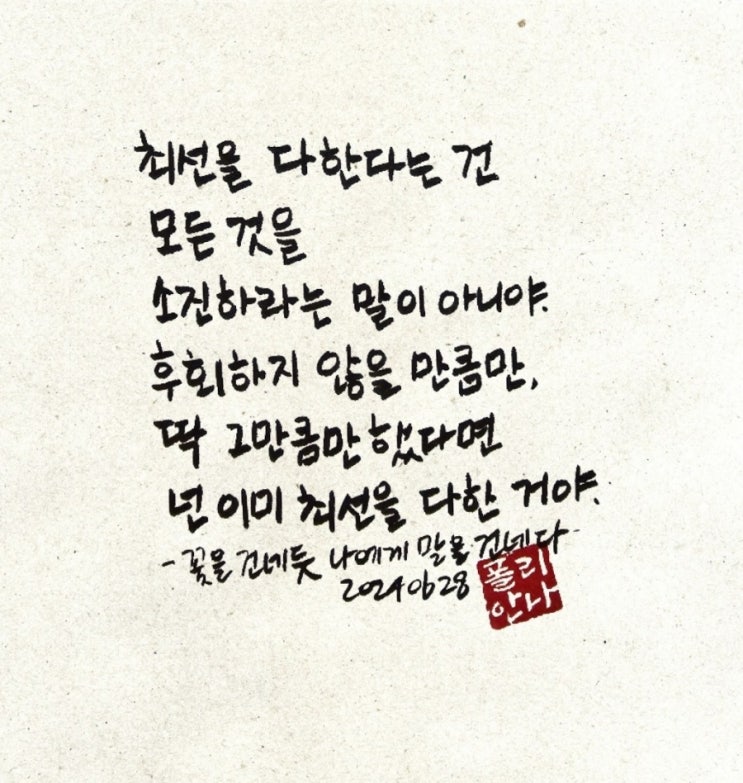 최선을 다한다는 건
모든 것을
소진하라는 말이 아니야.
후회하지 않을 만큼만,
딱 그만큼만 했다면
넌 이미 최선을 다한 거야.
-꽃을 건네듯 나에게 말을 건네다-
20240628
폴리
안나